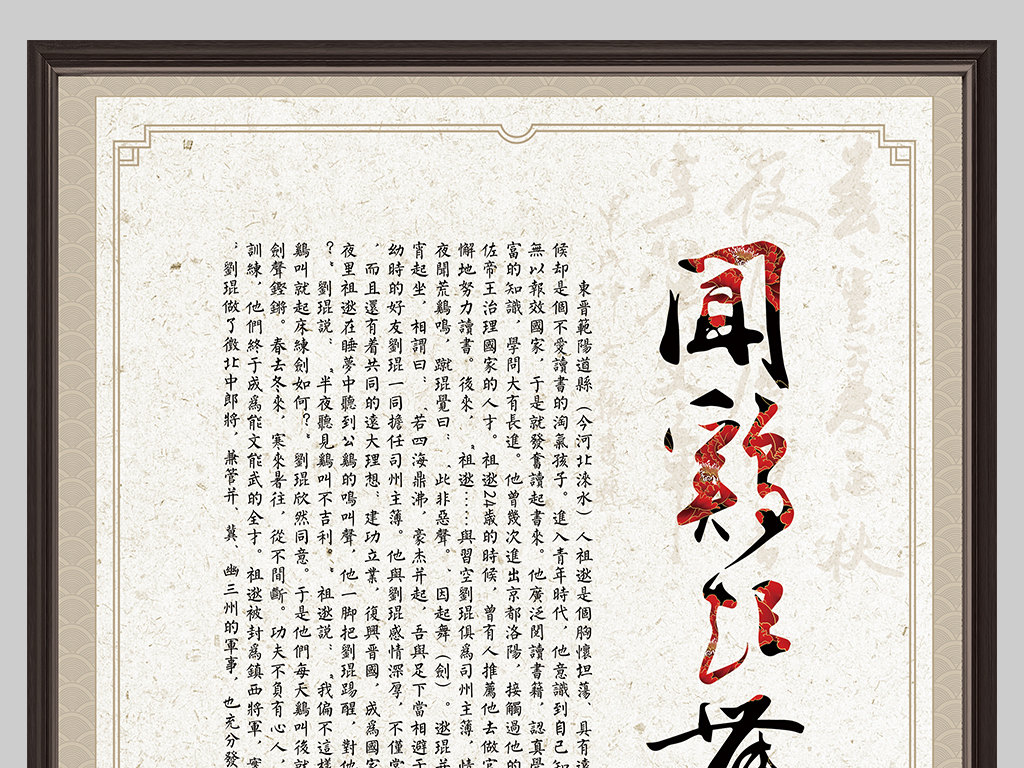 聞鷄起舞
東晉範陽道縣（今河北淶水）人祖逖是個胸懷坦蕩、具有遠
候却是個不愛讀書的淘氣孩子。進入青年時代，他意識到自己知
無以報效國家，于是就發奮讀起書來。他廣泛閱讀書籍，認真學
富的知識，學問大有長進。他曾幾次進出京都洛陽，接觸過他的
佐帝王治理國家的人才。祖逖24歲的時候，曾有人推薦他去做官
懈地努力讀書。後來，〝祖逖……與習空劉琨俱爲司州主薄，情
夜聞荒鷄鳴，蹴琨覺曰：、此非惡聲。、因起舞（劍）。逖琨并
宵起坐，相謂曰：、若四海鼎沸，豪杰并起，吾與足下當相避于
幼時的好友劉琨一同擔任司州主薄。他與劉琨感情深厚，不僅常
，而且還有着共同的遠大理想：建功立業，復興晉國，成爲國家
夜里祖逖在睡夢中聽到公鷄的鳴叫聲，他一脚把劉琨踢醒，對他
？〝劉琨説：〝半夜聽見鷄叫不吉利。〝祖逖説：〝我偏不這樣
鷄叫就起床練劍如何？〝劉琨欣然同意。于是他們每天鷄叫後就
劍聲鏗鏘。春去冬來，寒來暑往，從不間斷。功夫不負有心人，
訓練，他們終于成爲能文能武的全才。祖逖被封爲鎮西將軍，實
；劉琨做了徵北中郎將，兼管并、冀、幽三州的軍事，也充分發